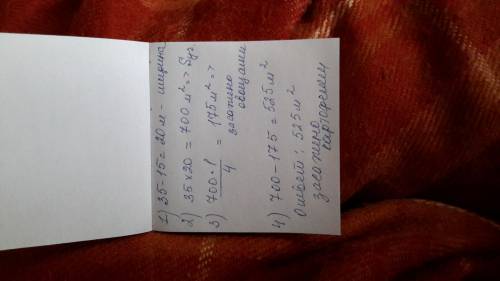 1) 35-15=20 м - ширина
2) 35×20 = 700 м² => Sуч.
3) 700·1/4 = 175 м² =>
засажено
овощами
4) 700-175=525 м²
Ответ: 525 м²
засажено
картофелем